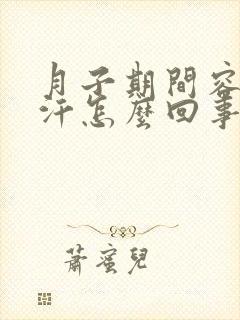 月子期間容
汗怎麼回事
蕭蜜兒